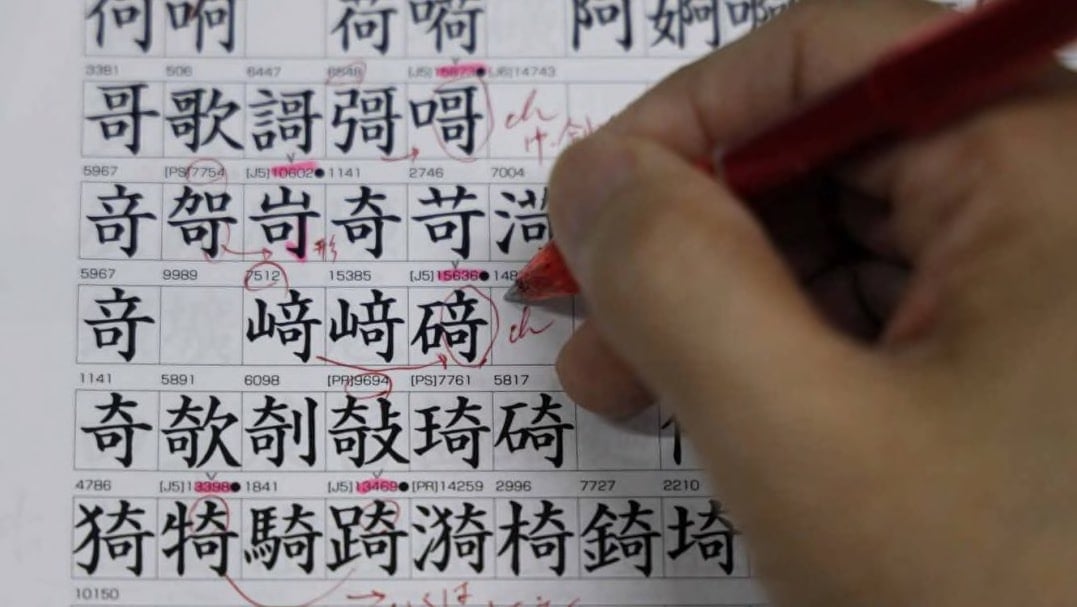 何 啊 荷 嗬 阿 婀 啊
3381 506 6447 6548 [J5]15873● [J6]14743
哥 歌 謌 彁 ch
5967 [PS]7754 [J5]10602● 1141 2746 7004
竒 哿 岢 奇 苛 形
5967 9989 7512 15385 [J5]15636●
竒 﨑 ch
1141 5891 6098 [PR]9694 [PS]7761 5817
奇 欹 剞 敧 琦 碕
4786 [J5]13398● 1841 [J5]13469● [PR]14259 2996 7727 2210
猗 犄 騎 踦 漪 椅 錡 埼
10150